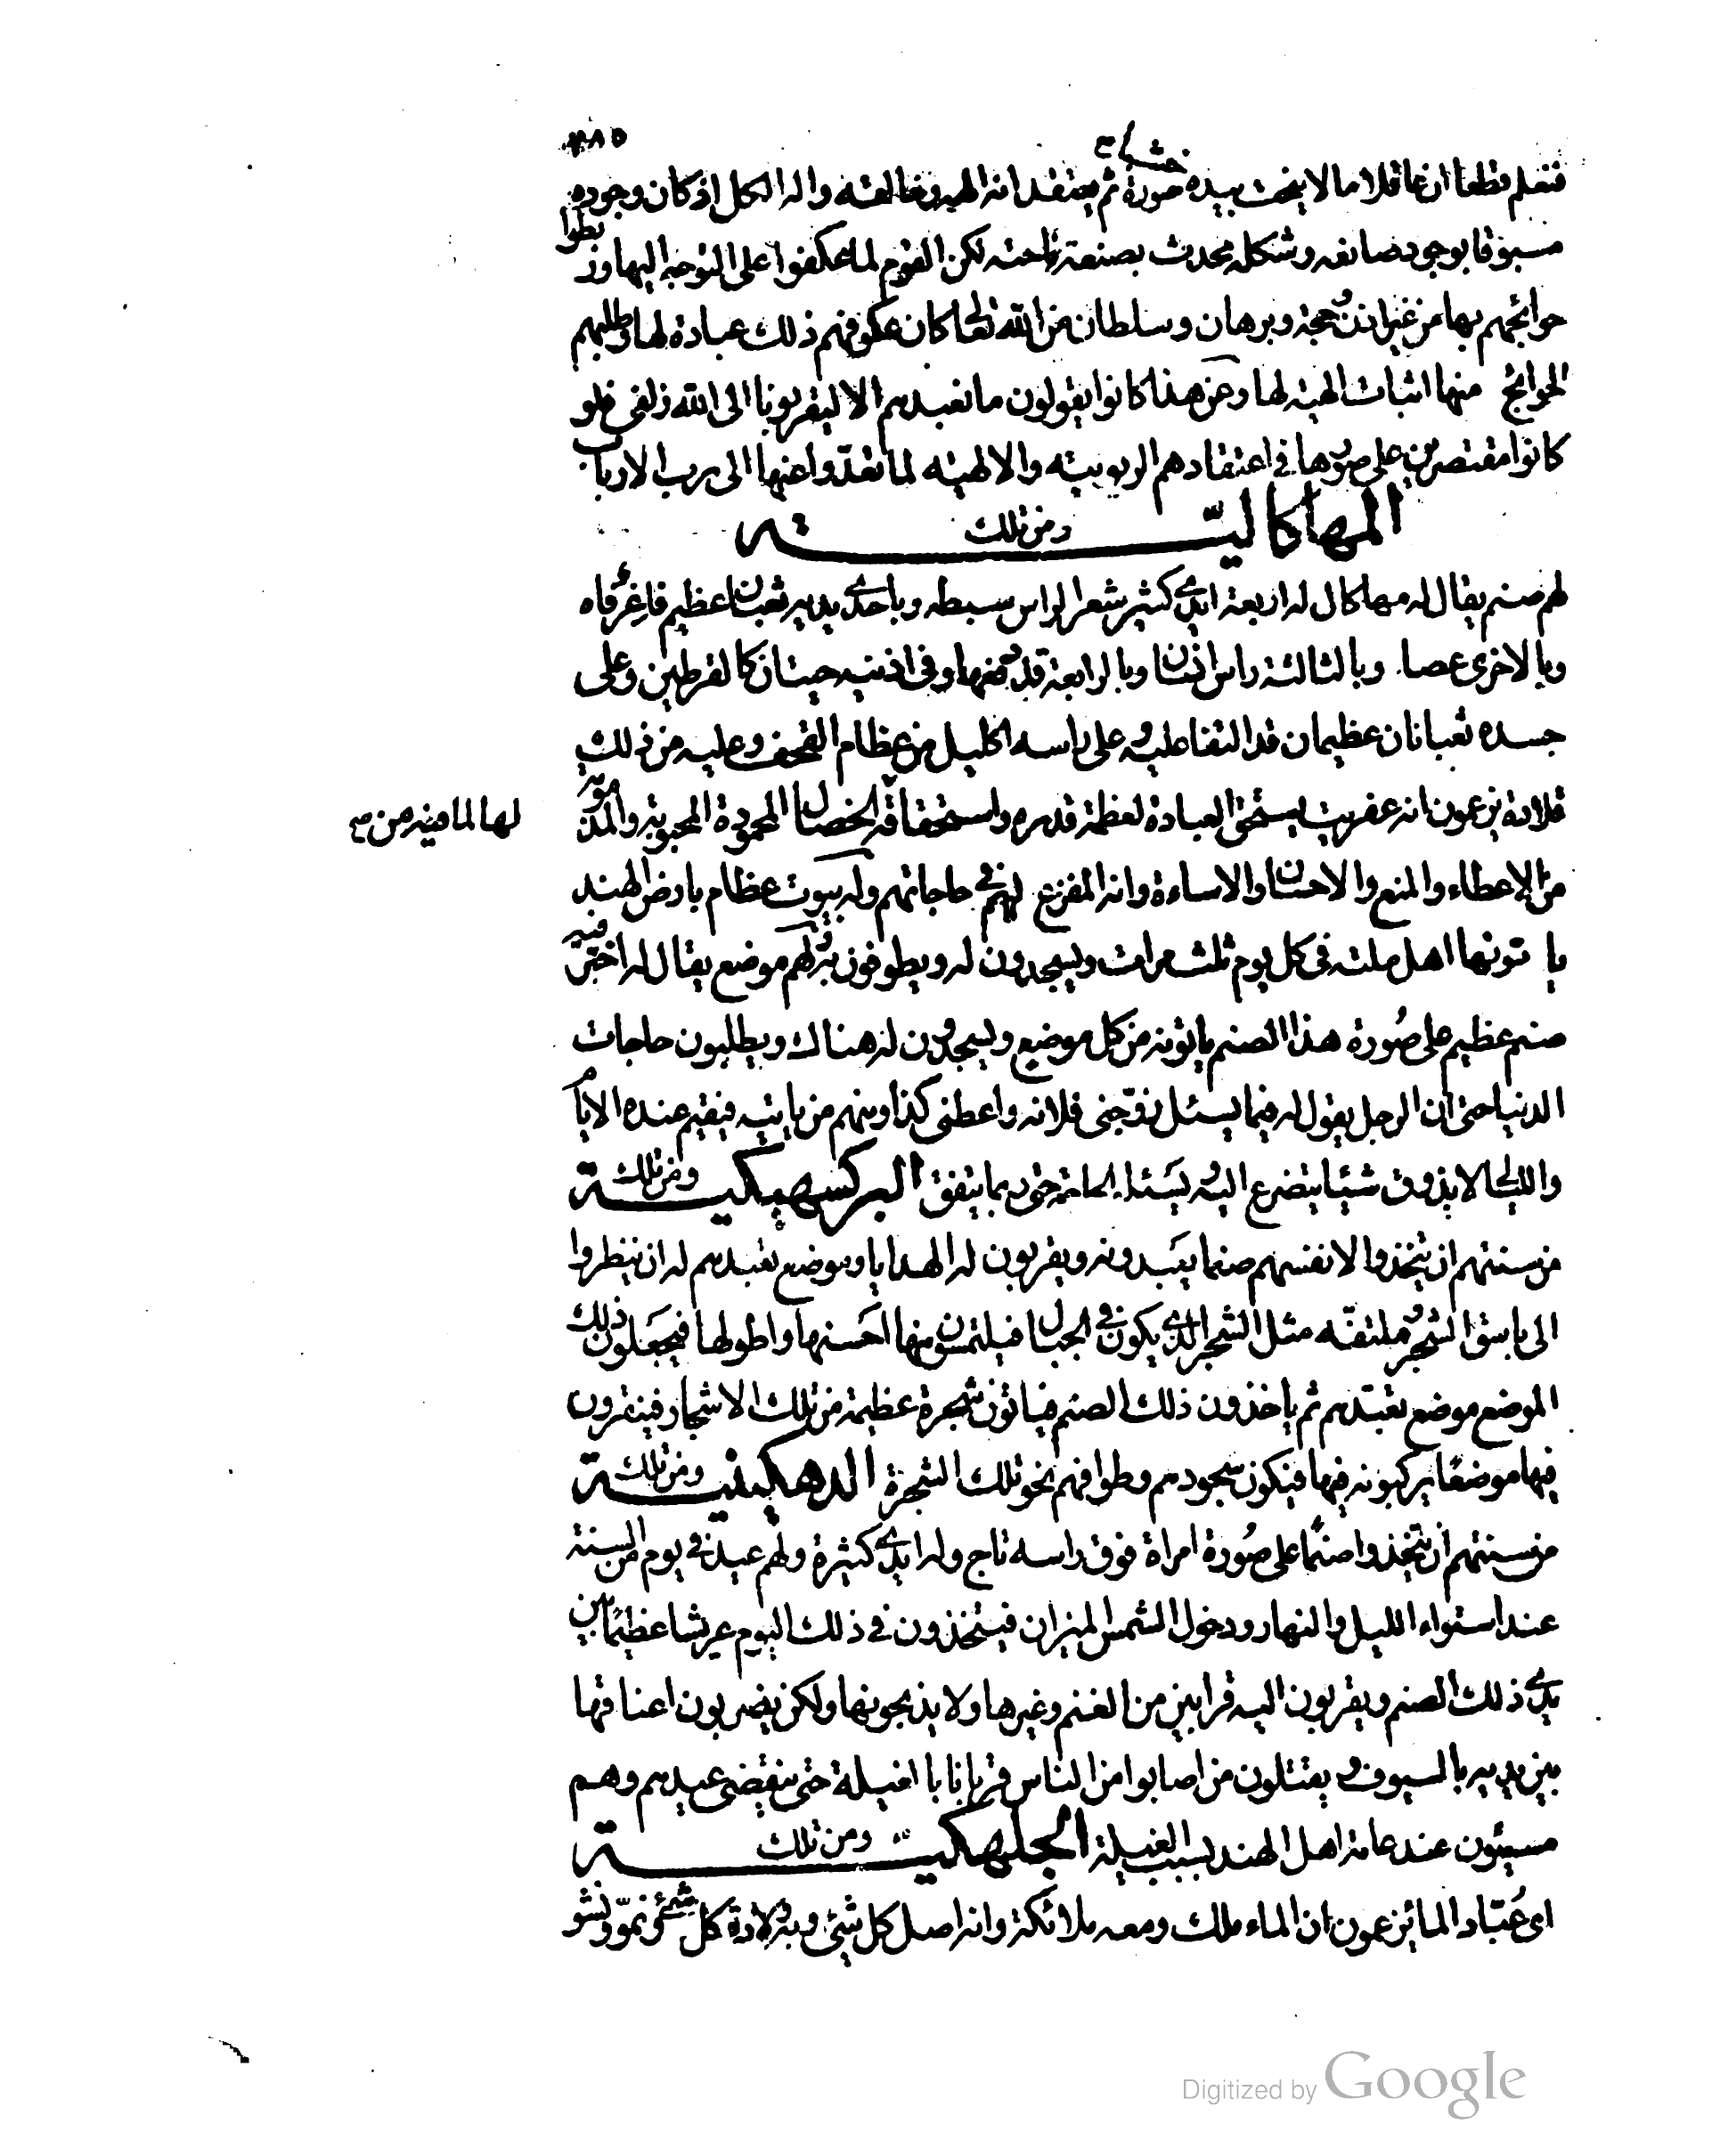 ٢٨٥
فنعلم قطعا ان عاقلا ما لا ينحت بيده خشبا صورة ثم يعتقد انه الهه وخالقه واله الكل اذ كان وجوده
مسبوقا بوجود صانعه وشكله محدث بصنعة ناحته لكن القوم لما عكفوا على التوجه اليها وربطوا
حوائجهم بها من غير اذن وحجة وبرهان وسلطان من الله تعالى كان عكوفهم ذلك عبادة لها وطلبهم
الحوائج منها اثبات الهية لها وعن هذا كانوا يقولون ما نعبدهم الا ليقربونا الى الله زلفى فلو
كانوا مقتصرين على صورها في اعتقادهم الربوبية والالهية لما تعدوا عنها الى رب الارباب
ومن تلك المهاكالية
لهم صنم يقال له مهاكال له اربعة ايدي كثير شعر الراس سبطه وباحدى يديه ثعبان عظيم فاغر فاه
وبالاخرى عصا وبالثالثة راس انسان وبالرابعة قد دفعها وفي اذنيه حيتان كالقرطين وعلى
جسده ثعبانان عظيمان قد التفا عليه وعلى راسه اكليل من عظام القحف وعليه من ذلك
قلادة يزعمون انه عفريت يستحق العبادة لعظمة قدره واستحقاقه الخصال المحمودة المحبوبة والمذمومة
لها لما فيه من صح
من الاعطاء والمنع والاحسان والاساءة وانه المفزع لهم في حاجاتهم وله بيوت عظام بارض الهند
ياتونها اهل ملته في كل يوم ثلث مرات ويسجدون له ويطوفون به ولهم موضع يقال له اختر فيه
صنم عظيم على صورة هذا الصنم ياتونه من كل موضع ويسجدون له هناك ويطلبون حاجات
الدنيا حتى ان الرجل يقول له فيما يسئل زوجني فلانه واعطني كذا ومنهم من ياتيه فيقيم عنده الايام
والليالى لا يذوق شيئا يتضرع اليه ويسئله الحاجة حتى ربما يتفق ومن تلك البركسهيكية
من سنتهم ان يتخذوا لانفسهم صنما يعبدونه ويقربون له الهدايا وموضع تعبدهم له ان ينظروا
الى باسق الشجر وملتفه مثل الشجر الذي يكون في الجبال فيلتمسون منها احسنها واطولها فيجعلون ذلك
الموضع موضع تعبدهم ثم ياخذون ذلك الصنم فياتون شجرة عظيمة من تلك الاشجار فينقرون
فيها موضعا يركبونه فيها فيكون سجودهم وطوافهم نحو تلك الشجرة ومن تلك الدهكينية
من سنتهم ان يتخذوا صنما على صورة امراة فوق راسه تاج وله ايدي كثيرة ولهم عيد في يوم من السنة
عند استواء الليل والنهار ودخول الشمس الميزان فيتخذون في ذلك اليوم عريشا عظيما بين
يدي ذلك الصنم ويقربون اليه قرابين من الغنم وغيرها ولا يذبحونها ولكن يضربون اعناقها
بين يديه بالسيوف ويقتلون من اصابوا من الناس قربانا بالغيلة حتى ينقضي عيدهم وهم
مسيئون عند عامة اهل الهند بسبب الغيلة ومن تلك الجلهكية
اى عُبّاد الما يزعمون ان الماء ملك ومعه ملائكة وانه اصل كل شئ وبه ولادة كل شئ ونمو ونشو
Digitized by Google